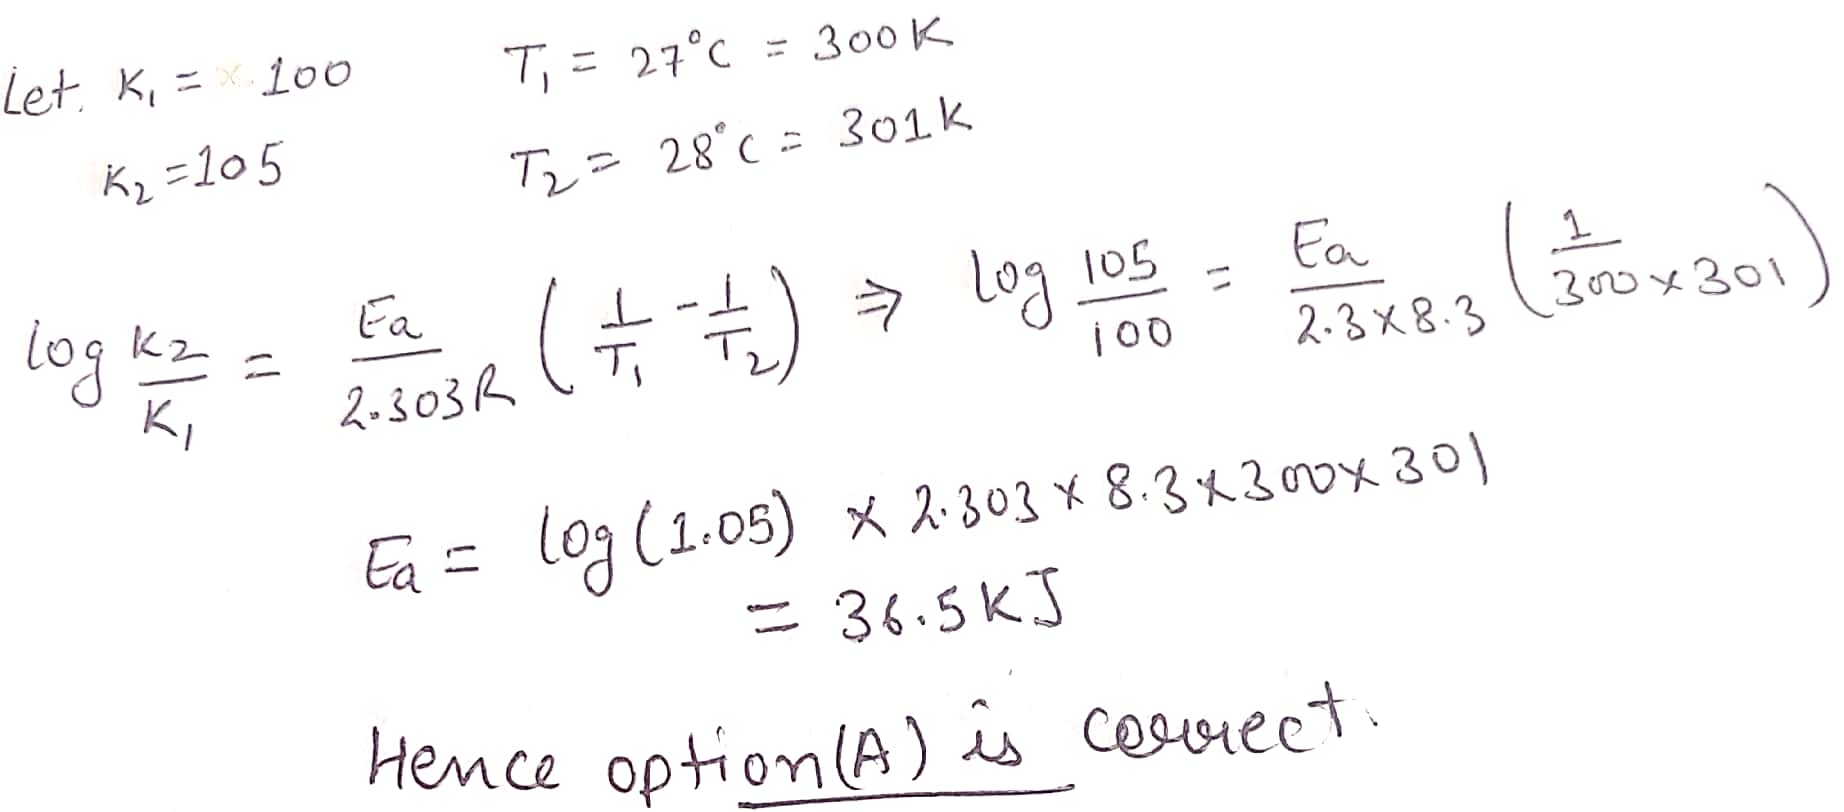 Let. K₁ = 100 T₁ = 27°C = 300K
K₂ = 105 T₂ = 28°C = 301K
log K₂/K₁ = Ea/2.303R (1/T₁ - 1/T₂) ⇒ log 105/100 = Ea/2.3×8.3 (1/300×301)
Ea = log(1.05) × 2.303 × 8.3 × 300 × 301
= 36.5KJ
Hence option(A) is correct.